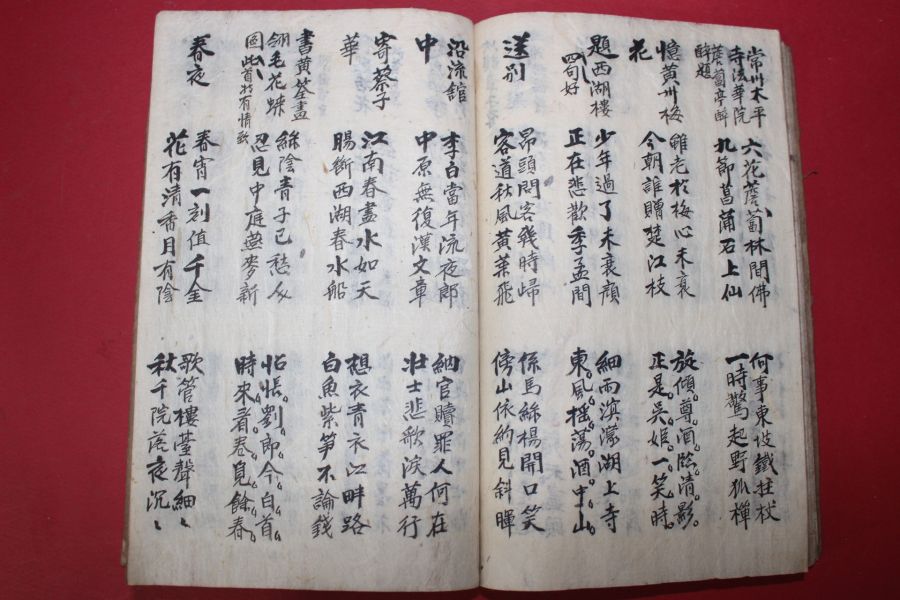 常州太平
寺法華院
薝蔔亭醉
醉題
六花薝蔔林間佛
九節菖蒲石上仙
何事東坡鐵拄杖
一時驚起野狐禪
憶黃州梅
花
雖老於梅心未衰
今朝誰贈楚江枝
旋傾尊酒臨清影
正是吳姬一笑時
題西湖樓
四句好
少年過了未衰顏
正在悲歡季孟間
細雨溟濛湖上寺
東風搖蕩酒中山
送別
昂頭問客幾時歸
客道秋風黃葉飛
係馬綠楊開口笑
傍山依約見斜暉
沿流館
中
李白當年流夜郎
中原無復漢文章
納官贖罪人何在
壯士悲歌淚萬行
寄蔡子
華
江南春盡水如天
腸斷西湖春水船
想衣青衣江畔路
白魚紫笋不論錢
書黃筌畫
翎毛花蝶
圖 此首特有情致
綠陰青子已愁人
忍見中庭燕麥新
怊悵劉郎今白首
時來看春覓餘春
春夜
春宵一刻值千金
花有清香月有陰
歌管樓臺聲細〻
秋千院落夜沉〻